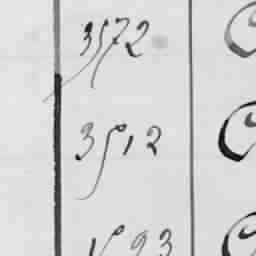 3572
3512
1593